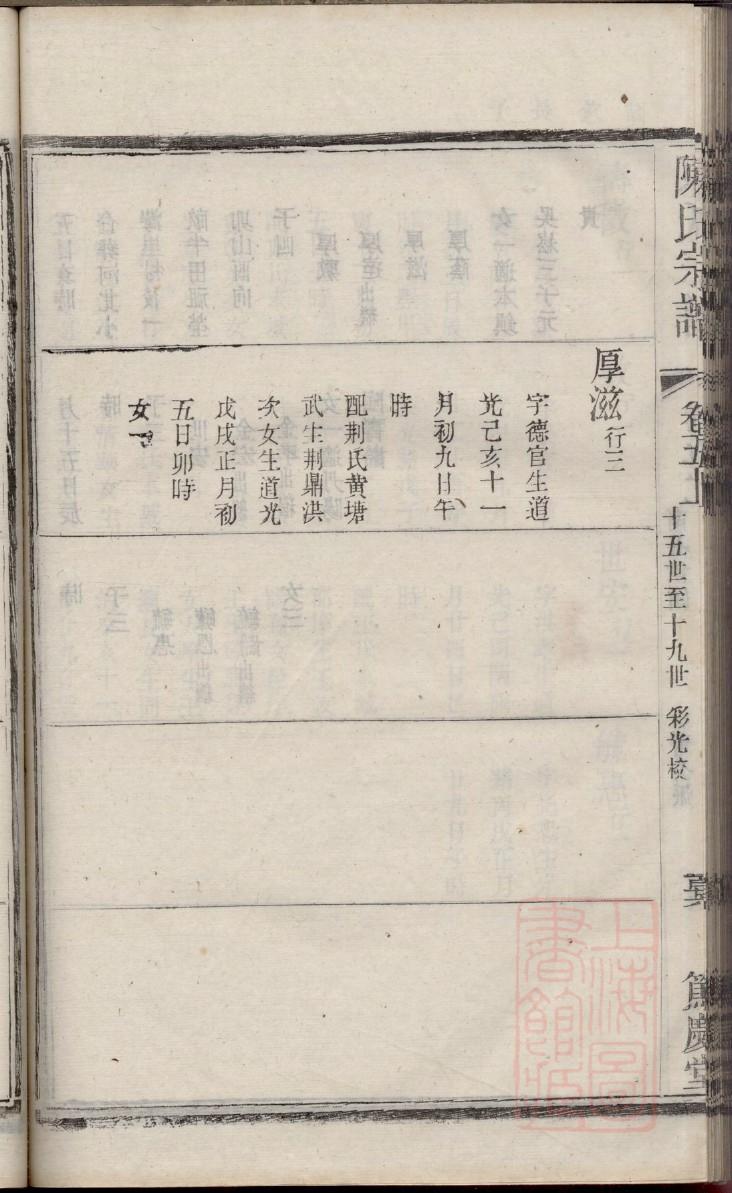 陳氏宗譜
卷五上
十五世至十九世 彩光校
篤慶堂
厚滋行三
字德官生道
光己亥十一
月初九日午
時
配荆氏黄塘
武生荆鼎洪
次女生道光
戊戌正月初
五日卯時
女一
上海圖
書館藏